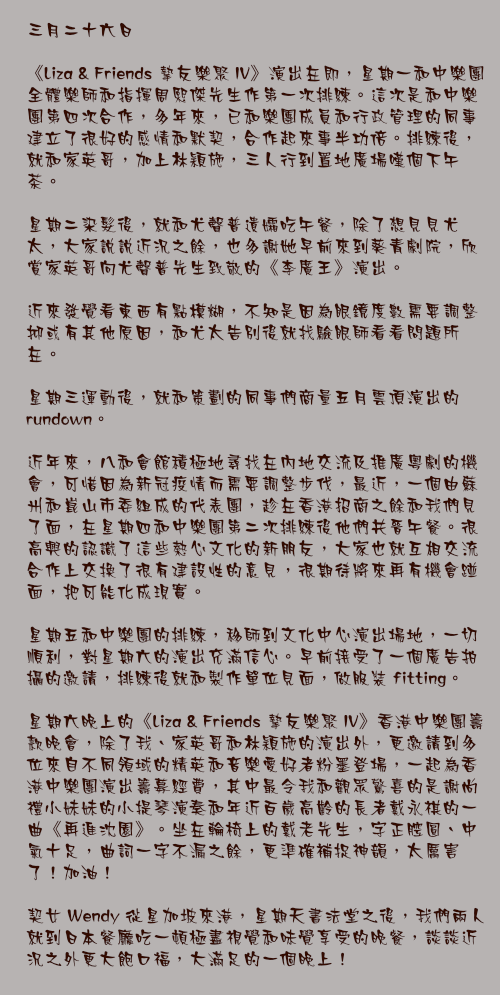 三月二十六日
《Liza & Friends 摯友樂聚 IV》演出在即，星期一和中樂團
全體樂師和指揮周熙傑先生作第一次排練。這次是和中樂
團第四次合作，多年來，已和樂團成員和行政管理的同事
建立了很好的感情和默契，合作起來事半功倍。排練後，
就和家英哥，加上林穎施，三人行到置地廣場嘆個下午
茶。
星期二染髮後，就和尤聲普遺孀吃午餐，除了想見見尤
太，大家說說近況之餘，也多謝她早前來到葵青劇院，欣
賞家英哥向尤聲普先生致敬的《李廣王》演出。
近來發覺看東西有點模糊，不知是因為眼鏡度數需要調整
抑或有其他原因，和尤太告別後就找驗眼師看看問題所
在。
星期三運動後，就和策劃的同事們商量五月雲頂演出的
rundown。
近年來，八和會館積極地尋找在內地交流及推廣粵劇的機
會，可惜因為新冠疫情而需要調整步伐，最近，一個由蘇
州和崑山市委組成的代表團，趁在香港招商之餘和我們見
了面，在星期四和中樂團第二次排練後他們共晉午餐。很
高興的認識了這些熱心文化的新朋友，大家也就互相交流
合作上交換了很有建設性的意見，很期待將來再有機會碰
面，把可能化成現實。
星期五和中樂團的排練，移師到文化中心演出場地，一切
順利，對星期六的演出充滿信心。早前接受了一個廣告拍
攝的邀請，排練後就和製作單位見面，做服裝 fitting。
星期六晚上的《Liza & Friends 摯友樂聚 IV》香港中樂團籌
款晚會，除了我、家英哥和林穎施的演出外，更邀請到多
位來自不同領域的精英和音樂愛好者粉墨登場，一起為香
港中樂團演出籌募經費，其中最令我和觀眾驚喜的是謝尚
禮小妹妹的小提琴演奏和年近百歲高齡的長者戴永祺的一
曲《再進沈園》。坐在輪椅上的戴老先生，字正腔圓、中
氣十足，曲詞一字不漏之餘，更準確捕捉神韻，太厲害
了！加油！
契女 Wendy 從星加坡來港，星期天書法堂之後，我們兩人
就到日本餐廳吃一頓極盡視覺和味覺享受的晚餐，談談近
況之外更大飽口福，大滿足的一個晚上！